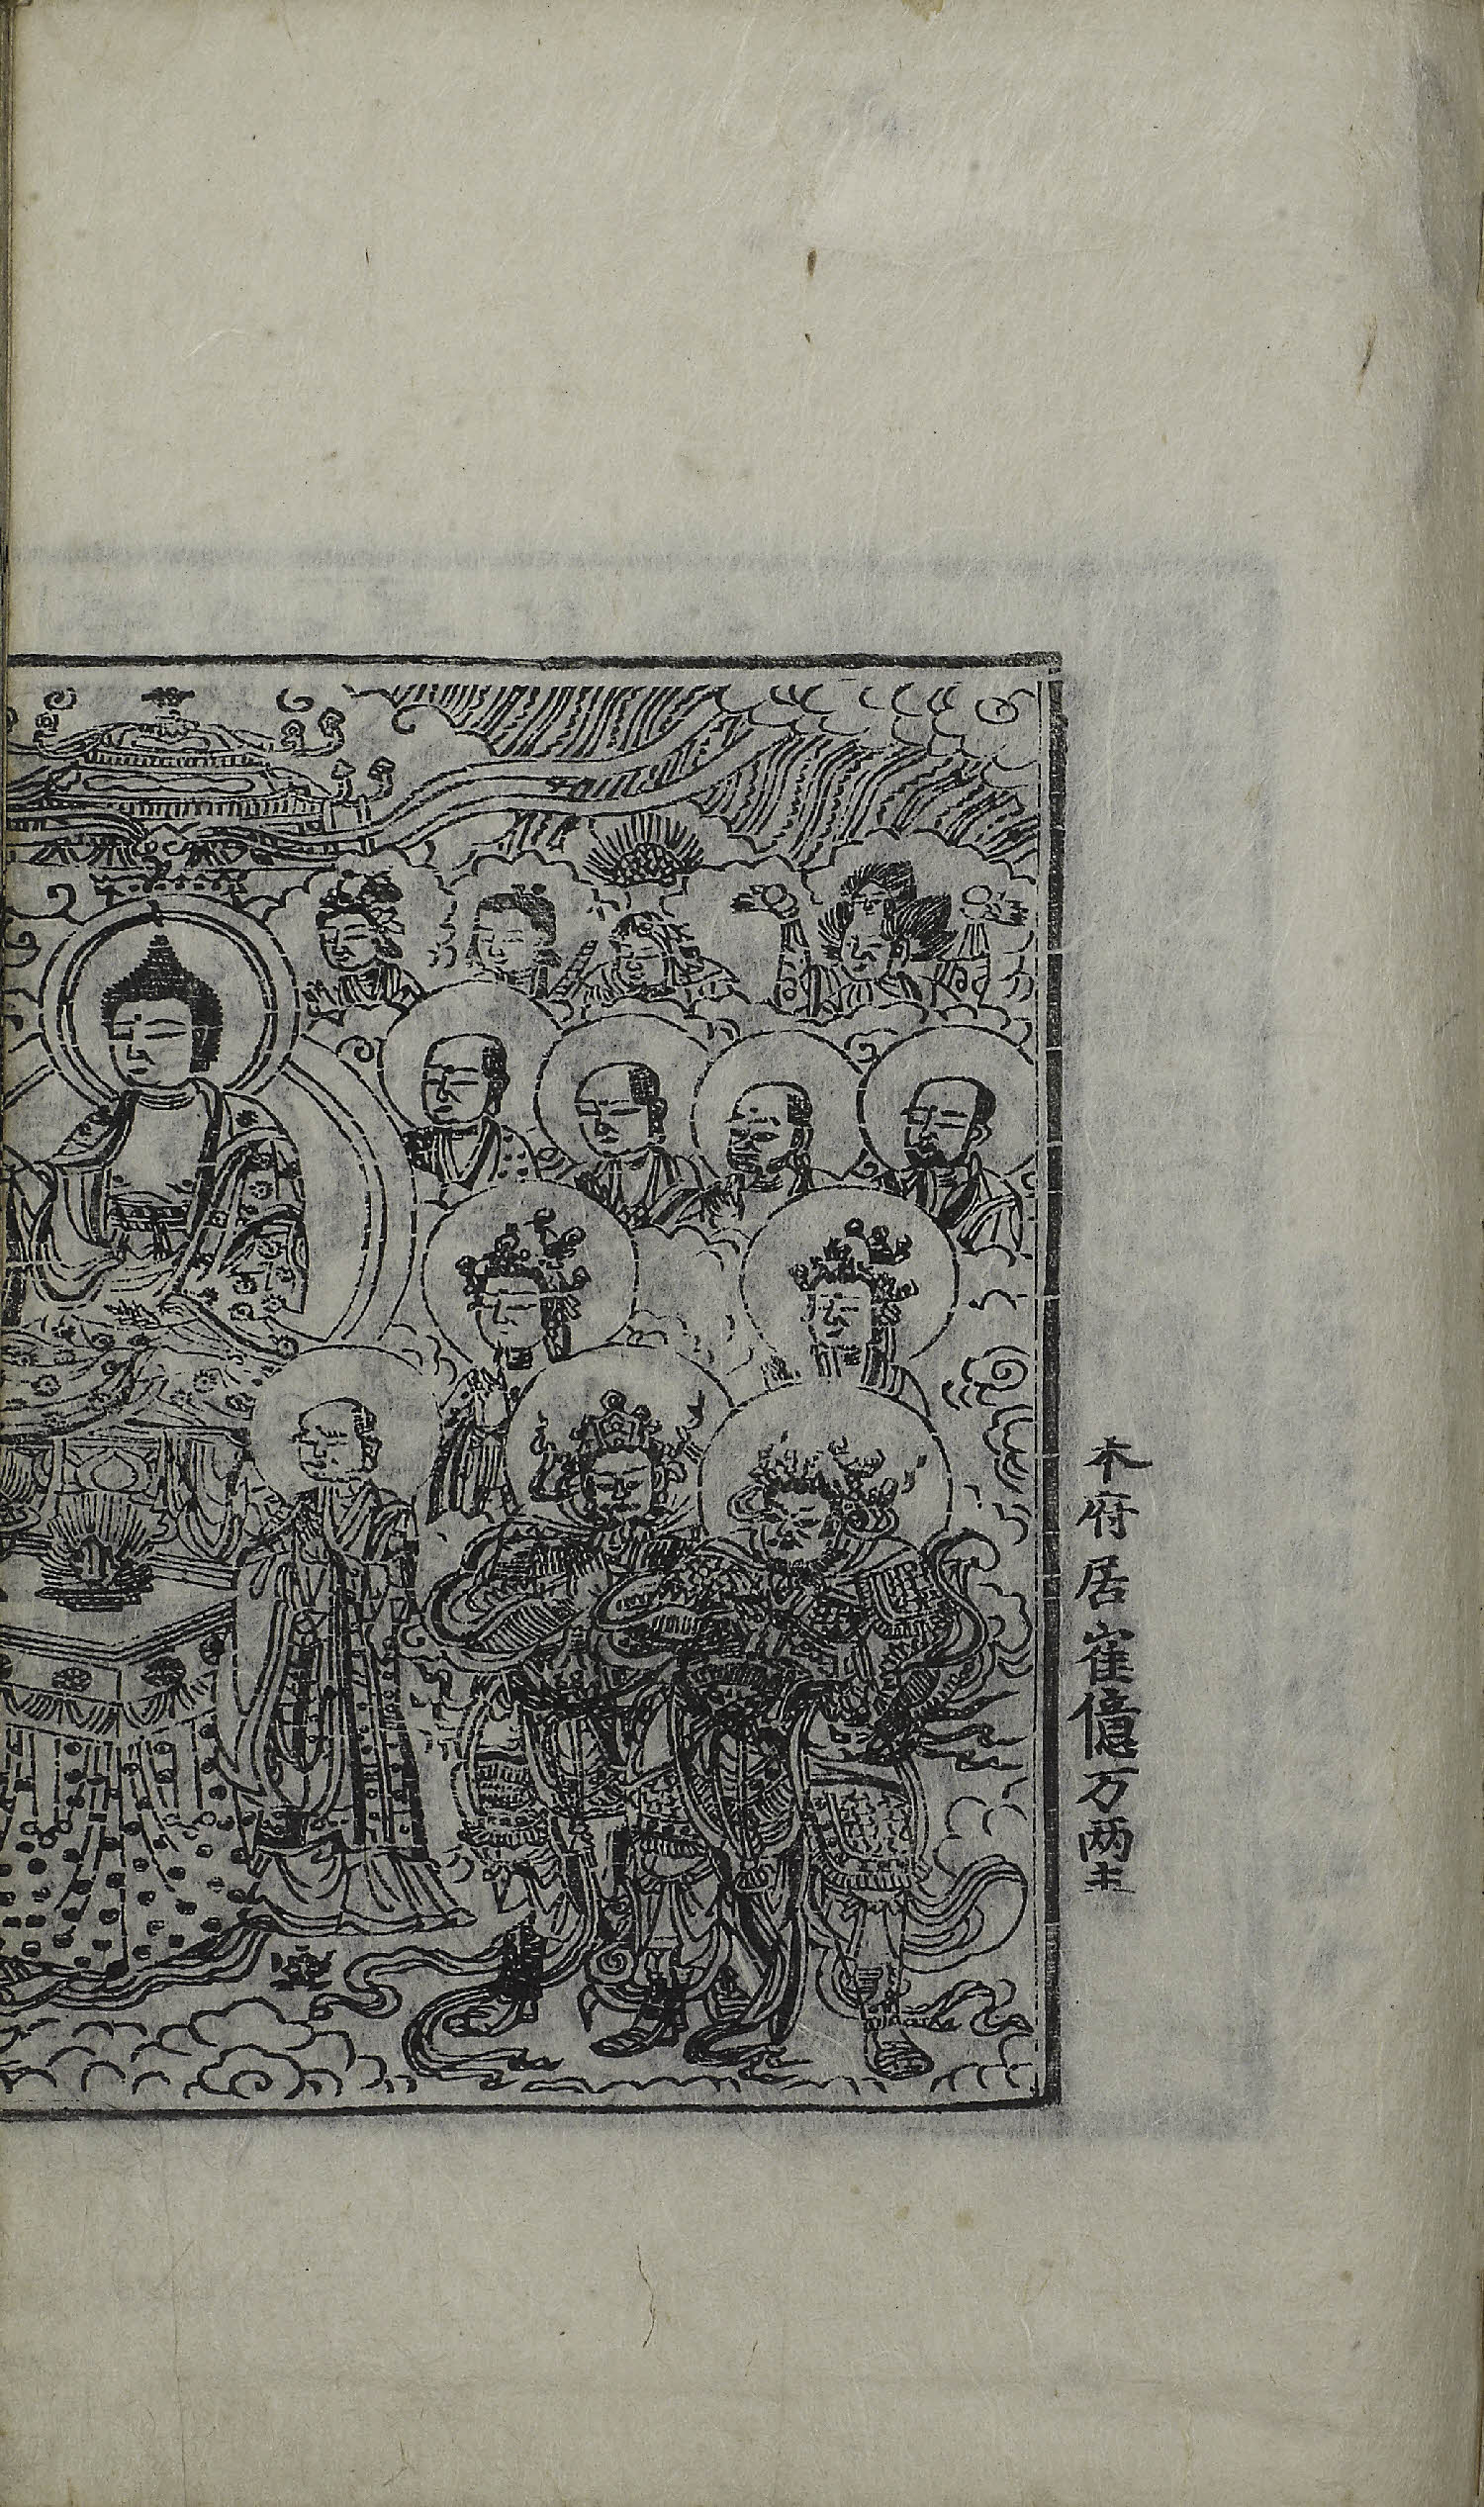 本府居崔億万兩主